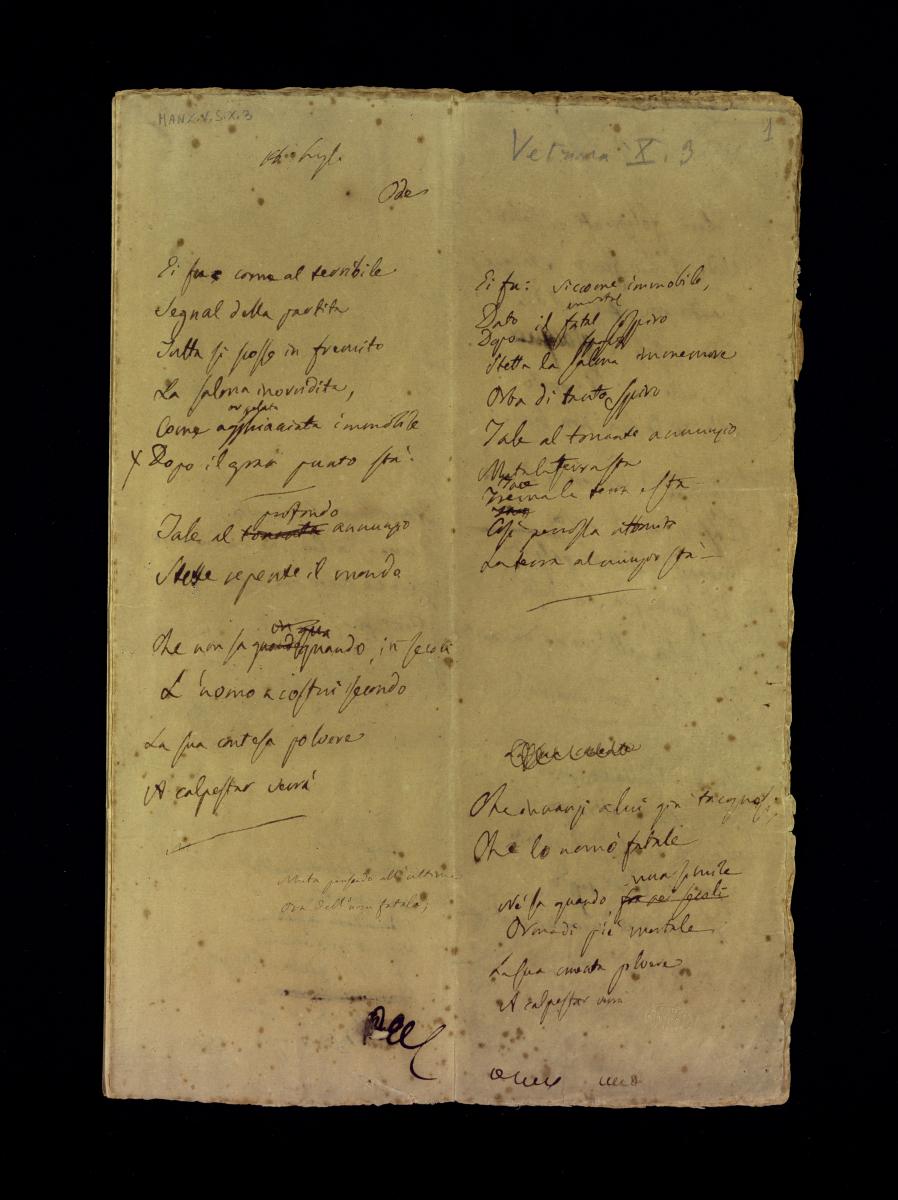 MANZ.V.S.X.3
Ode
Ei fu; come al terribile
Segnal della partita
Tutta si scosse in fremito
La salma inorridita,
or gelata
Come agghiacciata immobile
X Dopo il gran punto sta:
profondo
Tale al tonante annunzio
Stette repente il mondo
Che non sa quando quando, in secoli
L'uomo a costui secondo
La sua contesa polvere
A calpestar verrà
Muta pensando all'ultima
Ora dell'uom fatale;
Vetrina X. 3
1
Ei fu: siccome immobile,
mortal
Dato il fatal sospiro
Dopo
Stette la salma immemore
Orba di tanto spiro
Tale al tonante annunzio
Muta la terra sta
Trema la terra e sta
Così percossa attonita
La terra al nunzio sta
Che innanzi a lui già tacque
Che lo nomò fatale
una simile
Nè sa quando
Orma di piè mortale
La sua cruenta polvere
A calpestar verrà